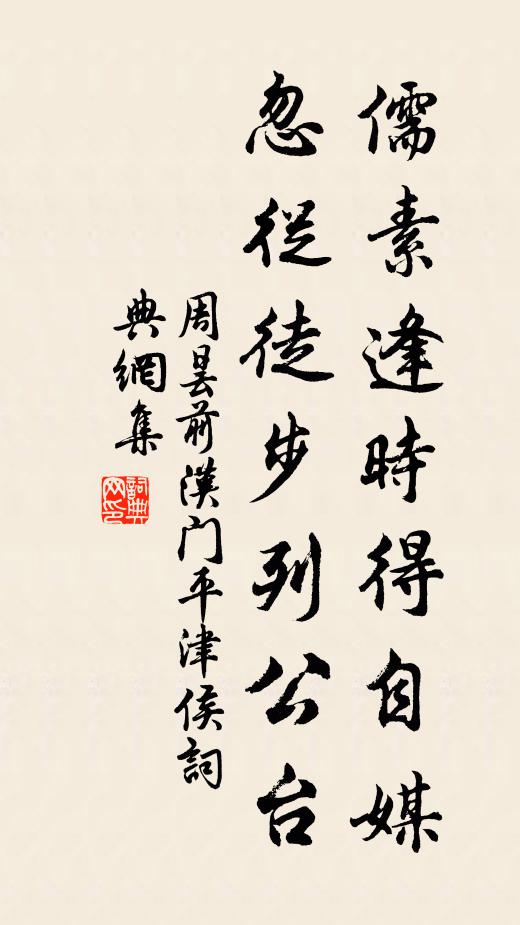 儒素逢時得自媒
忽從徒步列公台
周曇前漢門平津侯詞
典網集
詞典网印